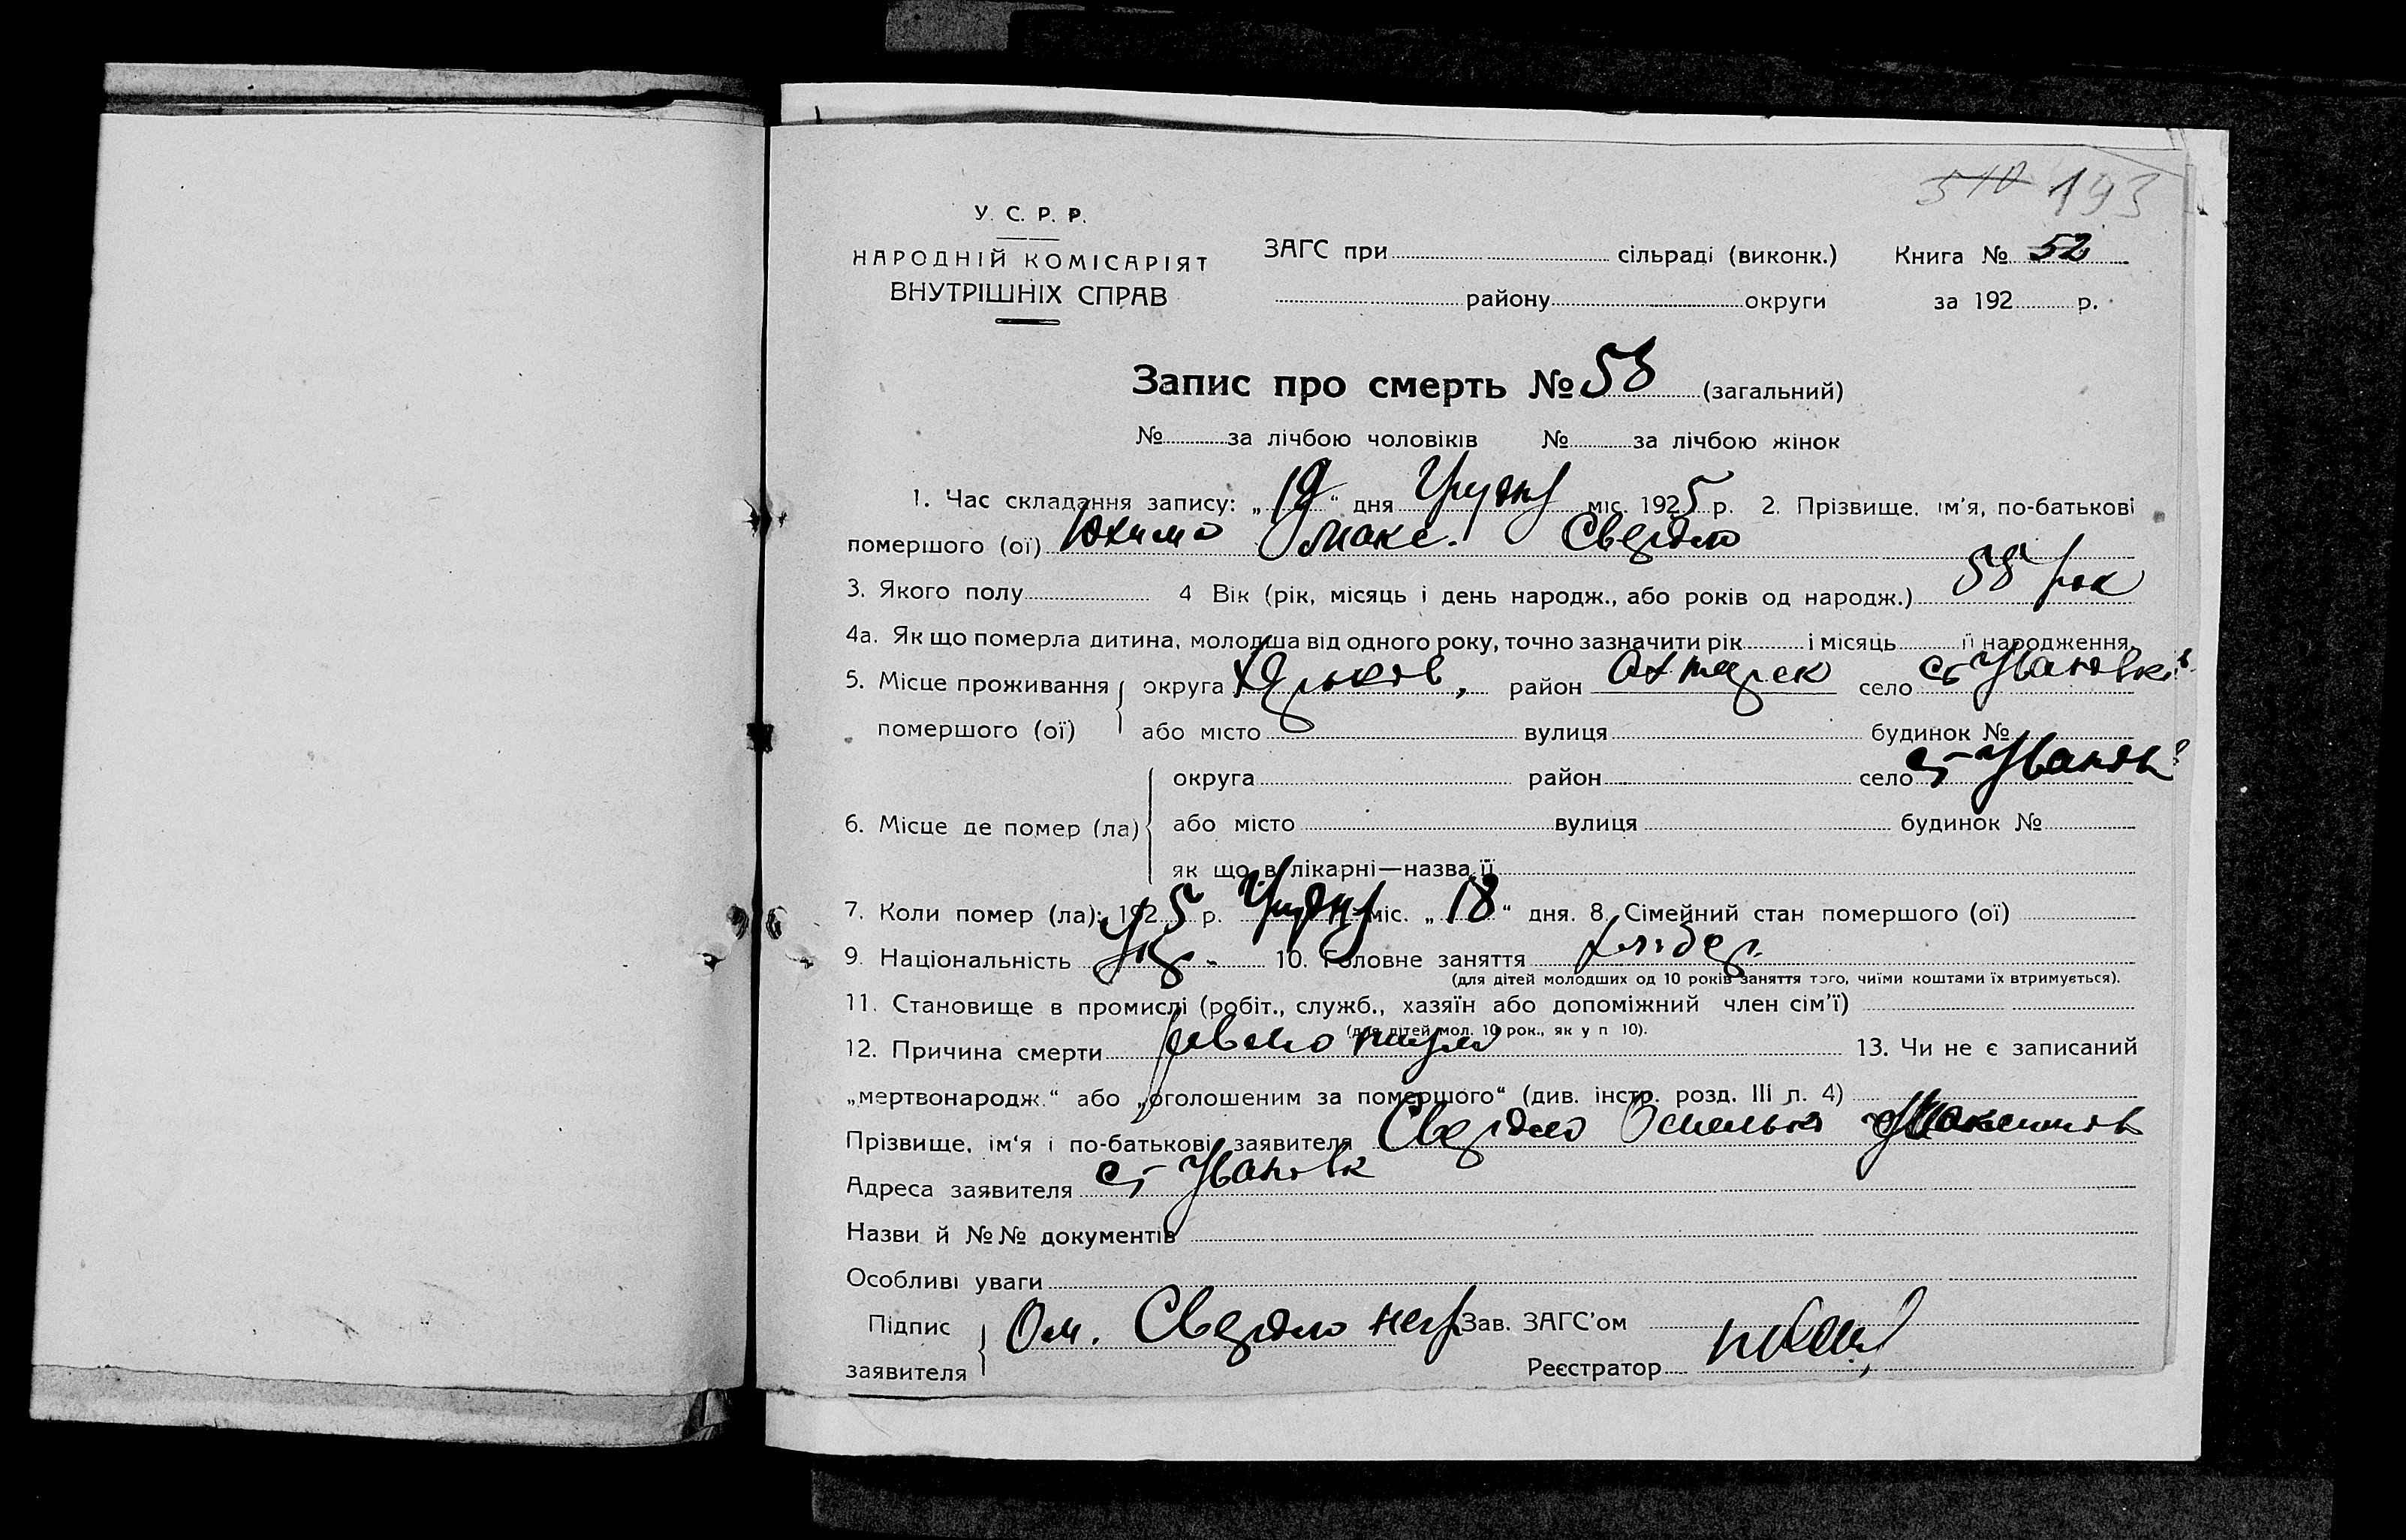 510 193
У. С. Р. Р.
НАРОДНІЙ КОМІСАРІЯТ
ВНУТРІШНІХ СПРАВ
ЗАГС при сільраді (виконк.) Книга № 52
району округи за 192 р.
Запис про смерть № 58 (загальний)
№ за лічбою чоловіків № за лічбою жінок
1. Час складання запису: „19“ дня Грудня міс. 1925 р. 2. Прізвище, ім'я, по-батькові
помершого (ої) Юхима Макс. Свердло
3. Якого полу 4 Вік (рік, місяць і день народж., або років од народж.) 58 рок
4а. Як що померла дитина, молодша від одного року, точно зазначити рік і місяць її народження
5. Місце проживання округа Харьков, район село
помершого (ої) або місто вулиця будинок №
округа район село
6. Місце де помер (ла) або місто вулиця будинок №
як що в лікарні—назва її
7. Коли помер (ла): 1925 р. Грудня міс. „18“ дня. 8. Сімейний стан помершого (ої)
9. Національність Укр. 10. Головне заняття хлібор.
(для дітей молодших од 10 років заняття того, чиїми коштами їх втримується).
11. Становище в промислі (робіт., служб., хазяїн або допоміжний член сім'ї)
(для дітей мол. 10 рок., як у п 10).
12. Причина смерти 13. Чи не є записаний
„мертвонародж.“ або „оголошеним за помершого“ (див. інстр. розд. III л. 4)
Прізвище, ім'я і по-батькові заявителя Свердло Омелько
Адреса заявителя
Назви й №№ документів
Особливі уваги
Підпис Ом. Свердло Зав. ЗАГС'ом
заявителя Реєстратор